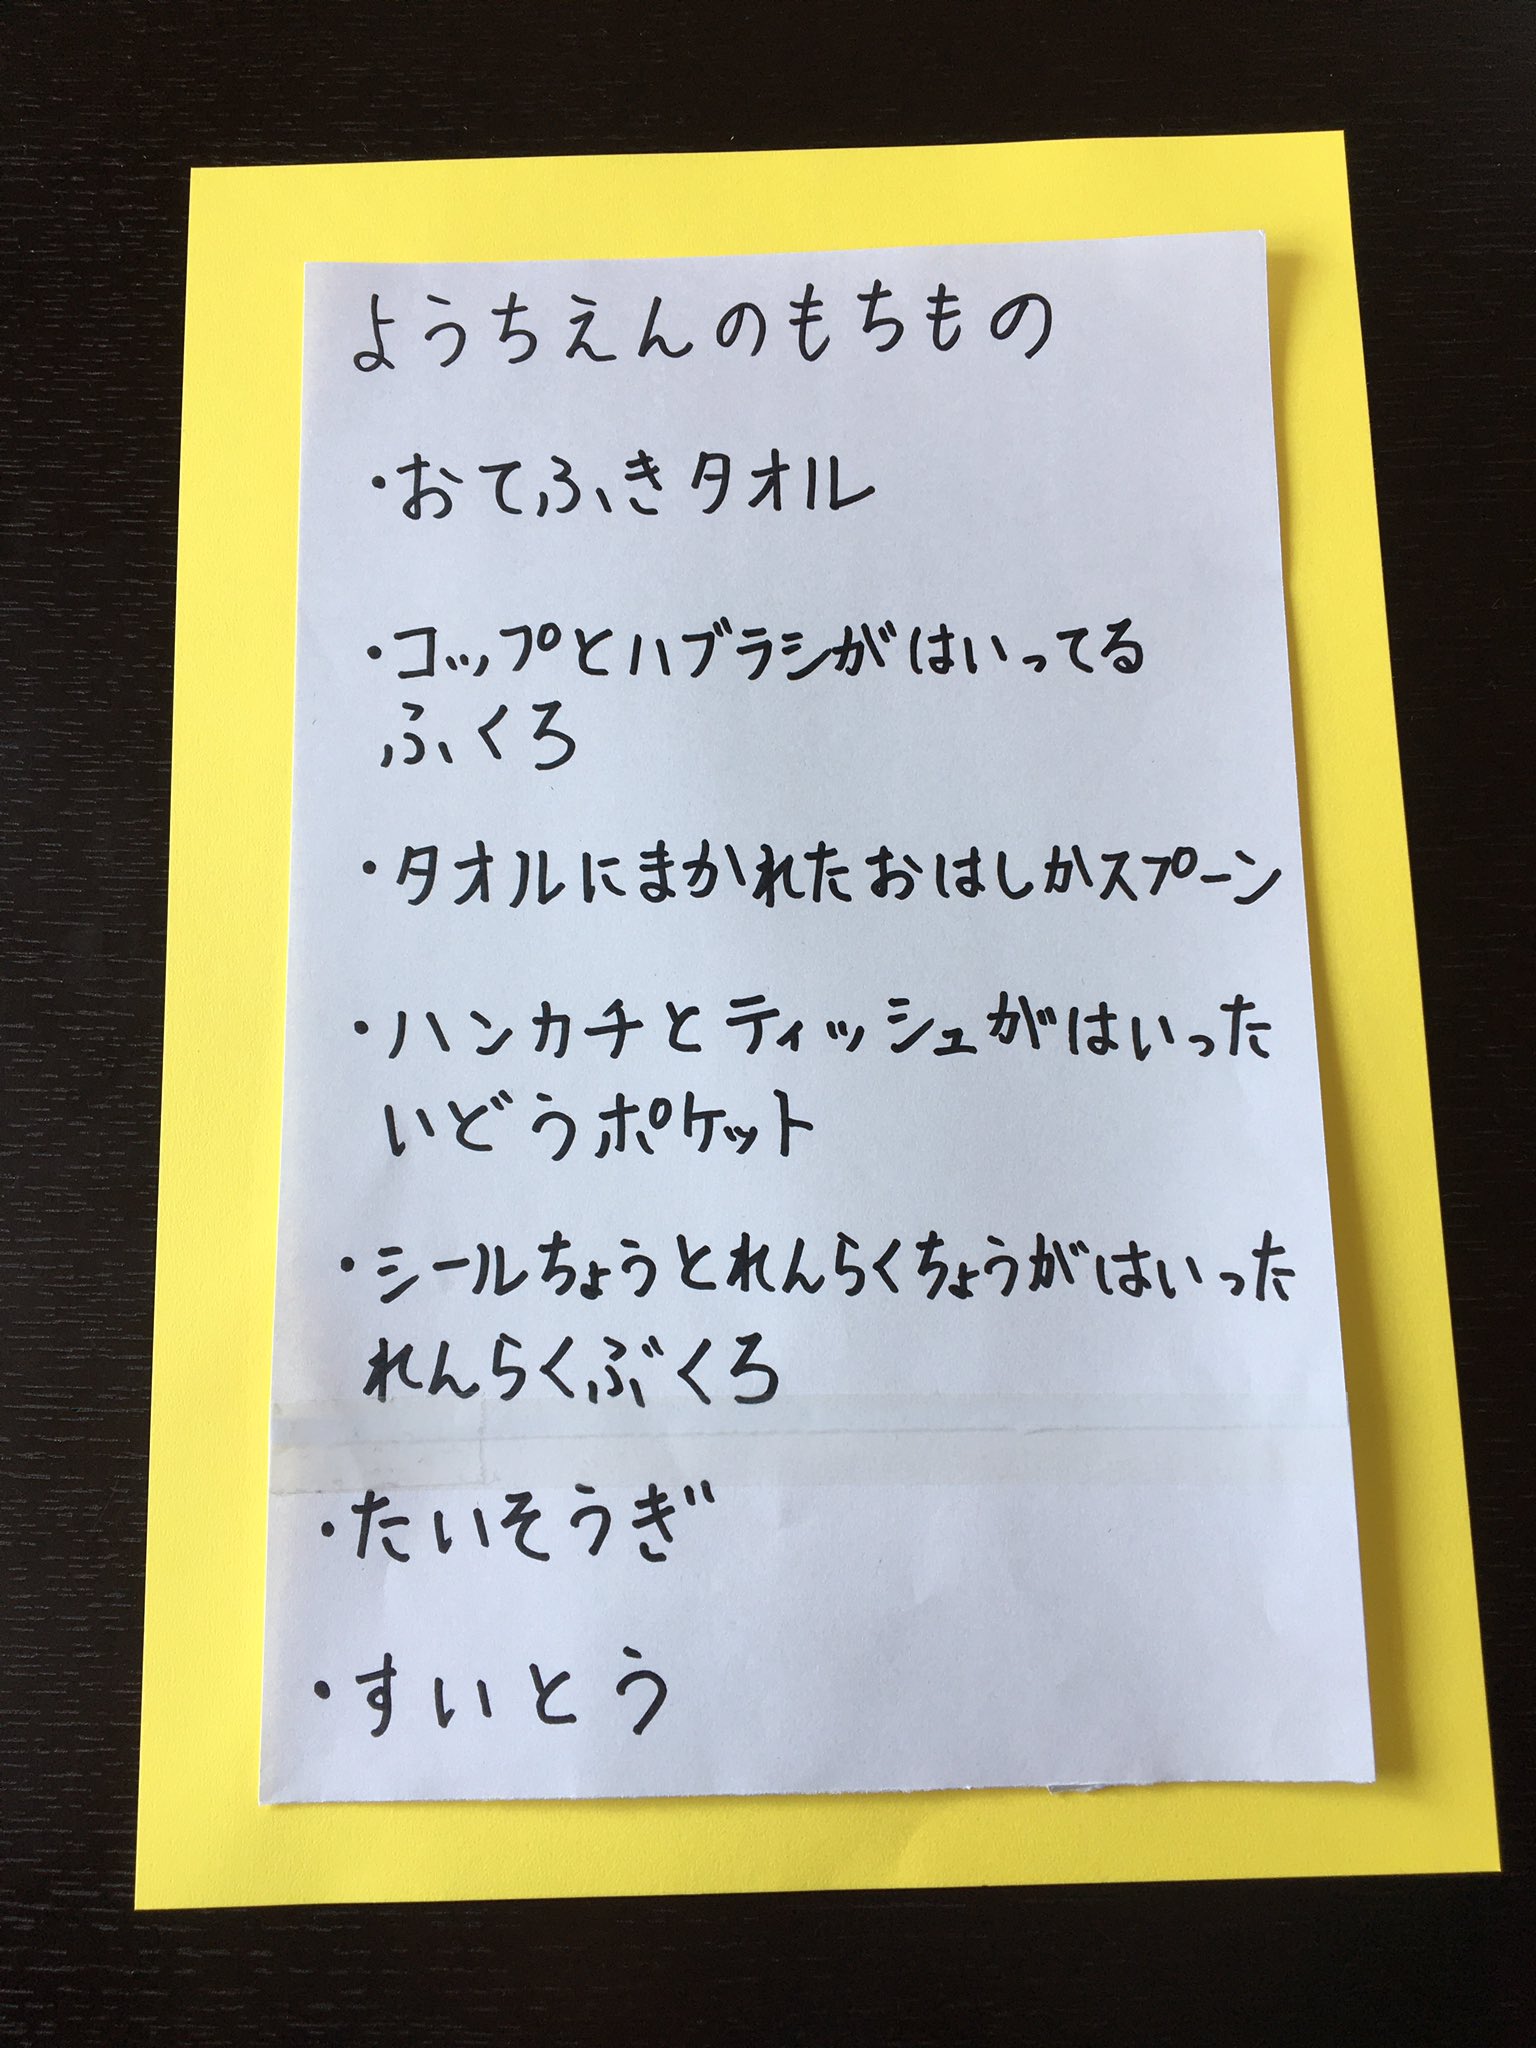 ようちえんのもちもの
・おてふきタオル
・コップとハブラシがはいってる
ふくろ
・タオルにまかれたおはしかスプーン
・ハンカチとティッシュがはいった
いどうポケット
・シールちょうとれんらくちょうがはいった
れんらくぶくろ
・たいそうぎ
・すいとう